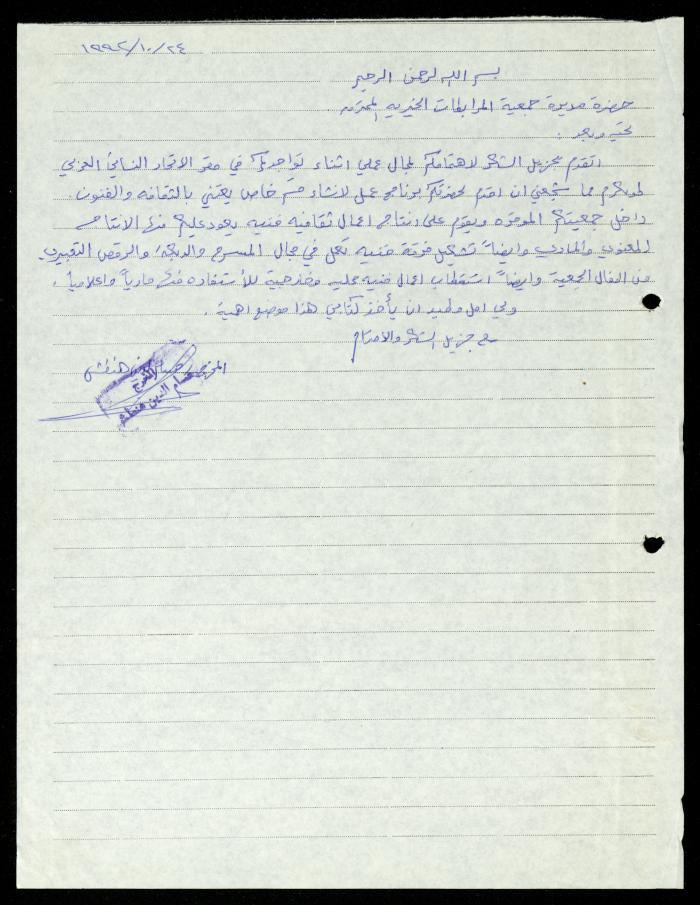 ١٩٩٢/١٠/٢٤
بسم الله الرحمن الرحيم
حضرة مديرة جمعية المرابطات الخيريه المحترمه
تحيه وبعد :
اتقدم بجزيل الشكر لاهتمامكم بمجال عملي اثناء تواجدي في مقر الاتحاد النسائي العربي
مما شجعني ان اقدم لحضرتكم برنامج عمل لانشاء قسم خاص يعتني بالثقافه والفنون
داخل جمعيتكم الموقره ويقوم على انتاج اعمال ثقافيه فنيه يعود عليكم منها الانتاج
المعنوي والمادي وايضاً تشكيل فرقة فنيه تعمل في مجال المسرح والدبكه والرقص التعبيري
من اطفال الجمعية وايضاً استقطاب اعمال فنيه محليه وخارجية للأستفاده منها مادياً واعلامياً .
ولي امل وطيد ان يأخذ كتابي هذا موضع اهمية .
مع جزيل الشكر والاحترام
المخرج حسام الدين
المخرج
حسام الدين